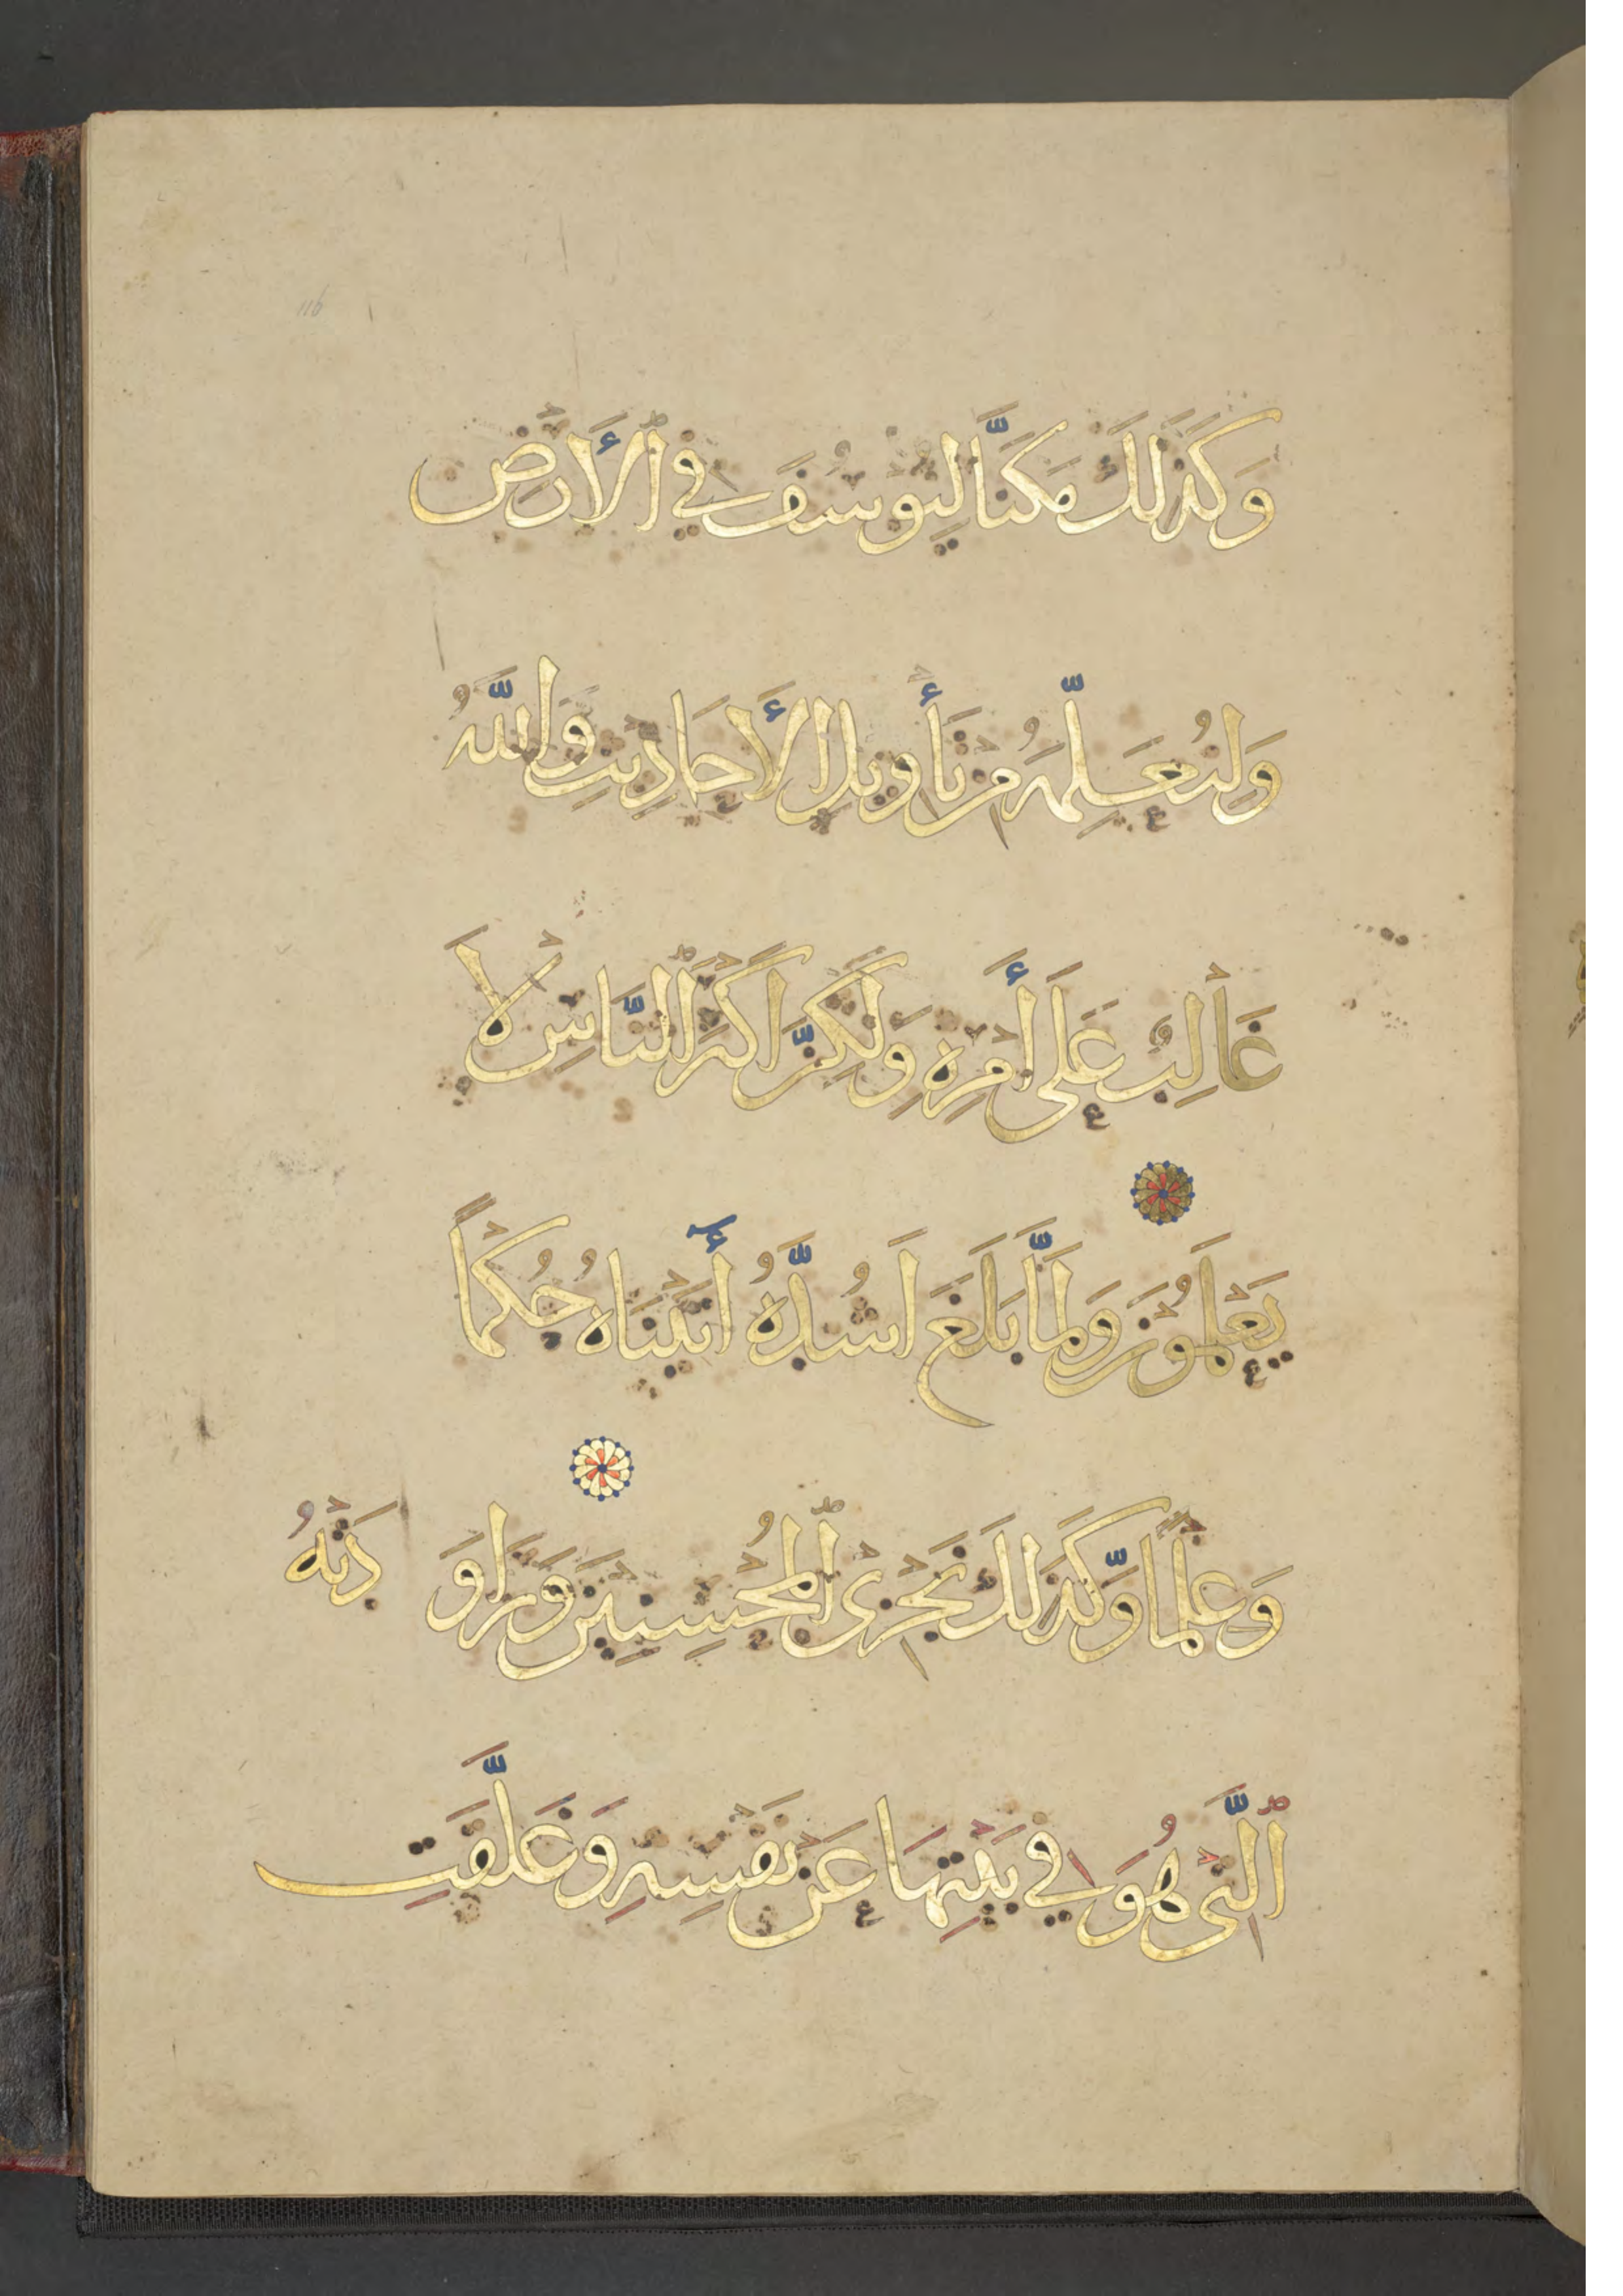 وَكَذَلِكَ مَكَّنَّا لِيُوسُفَ فِي ٱلْأَرْضِ
وَلِنُعَلِّمَهُ مِنْ تَأْوِيلِ الْأَحَادِيثِ وَاللَّهُ
غَالِبٌ عَلَى أَمْرِهِ وَلَكِنَّ اَكْثَرَ ٱلنَّاسِ لَا
يَعْلَمُونَ وَلَمَّا بَلَغَ اَشُدَّهُ أٓتَيْنَاهُ حُكْمًا
وَعِلْمًا وَّكَذَلِكَ نَجْزِى ٱلْمُحْسِنِينَ وَرَاوَدَتْهُ
ٱلَّتِى هُوَ فِي بَيْتِهَا عَنْ نَفْسِهِ وَغَلَّقَتِ